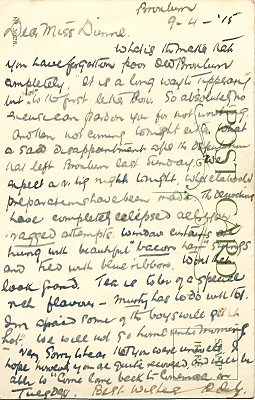 Bronburn
9-4-'15
Dear Miss Dunne.
What is the matter that
you have forgotten poor old Bronburn
completely. It is a long way to Tipperary
but its to first letter Box. So absolutely no
excuse can pardon you for not writing.
And then not coming tonight either. What
a sad disappointment after the
had left Bronburn last Sunday. We
expect a night tonight. What elaborate
preparations have been made. The decorations
have completely eclipsed all your
ragged attempts. Window curtains
hung with beautiful "bacon ham" strings
and tied with blue ribbon. Won't that
look grand. Tea is to be of a special
rich flavour - has to do with it.
I'm afraid some of the boys will get it
hot. We will not go home until morning
Very sorry to hear that you were unwell. I
hope however you are quite recovered and will be
able to "Come Come back to" on
Tuesday. Best Wishes
POST CARD